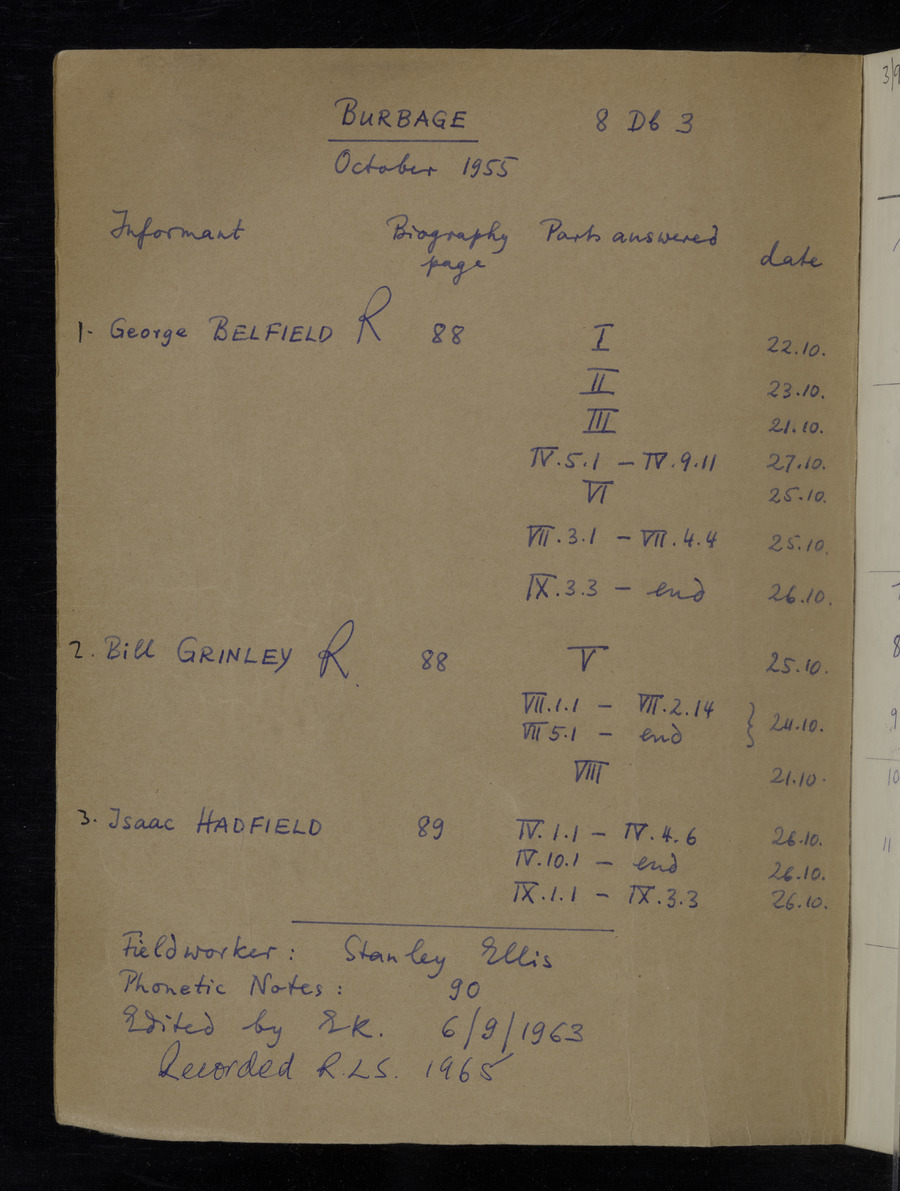 BURBAGE 8 Db 3
October 1955
Informant Biography page Parts answered date
1. George BELFIELD R 88 I 22.10.
II 23.10.
III 21.10.
IV.5.1 – IV.9.11 27.10.
VI 25.10.
VII.3.1 – VII.4.4 25.10.
IX.3.3 – end 26.10.
2. Bill GRINLEY R. 88 V 25.10.
VII.1.1 – VII.2.14 } 24.10.
VII 5.1 – end
VIII 21.10.
3. Isaac HADFIELD 89 IV.1.1 – IV.4.6 26.10.
IV.10.1 – end 26.10.
IX.1.1 – IX.3.3 26.10.
Fieldworker: Stanley Ellis
Phonetic Notes: 90
Edited by EK. 6/9/1963
Recorded R.LS. 1965
3/9
8
9
10
11